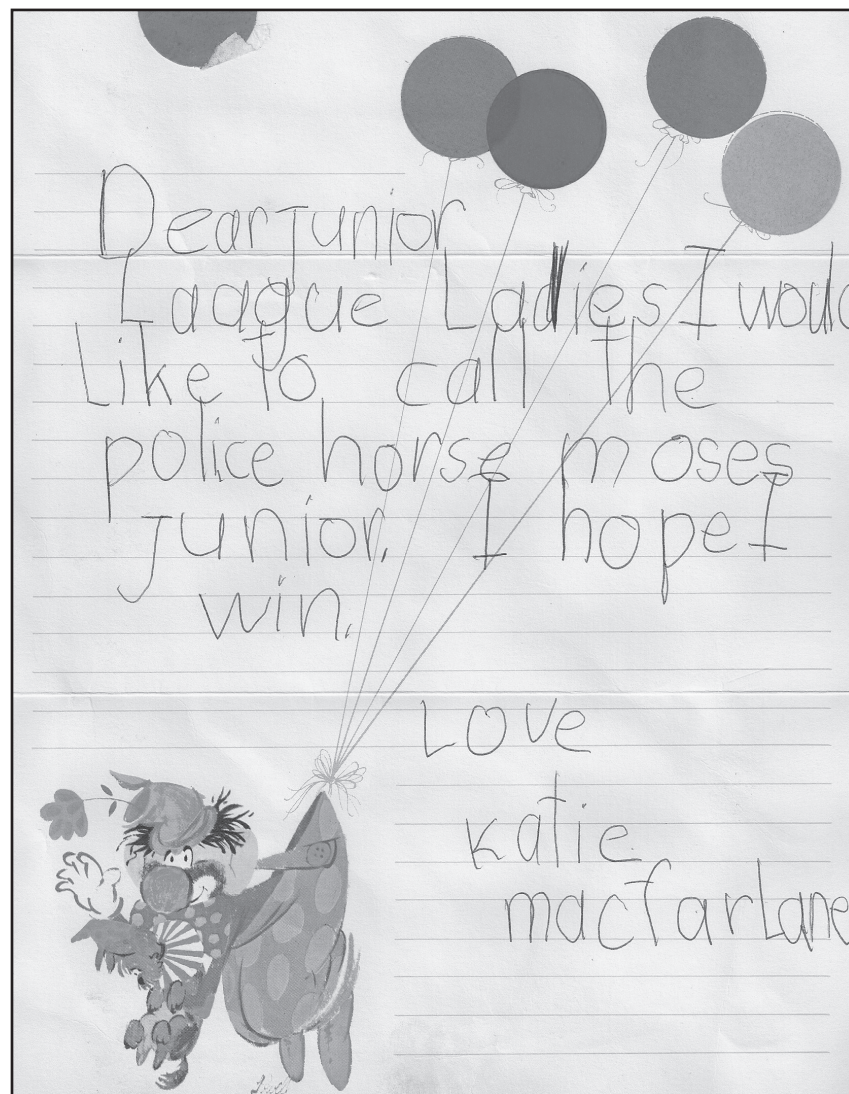 Dear junior
Laague Ladies I would
Like to call the
police horse moses
junior. I hope I
win.
Love
katie
macfarlane